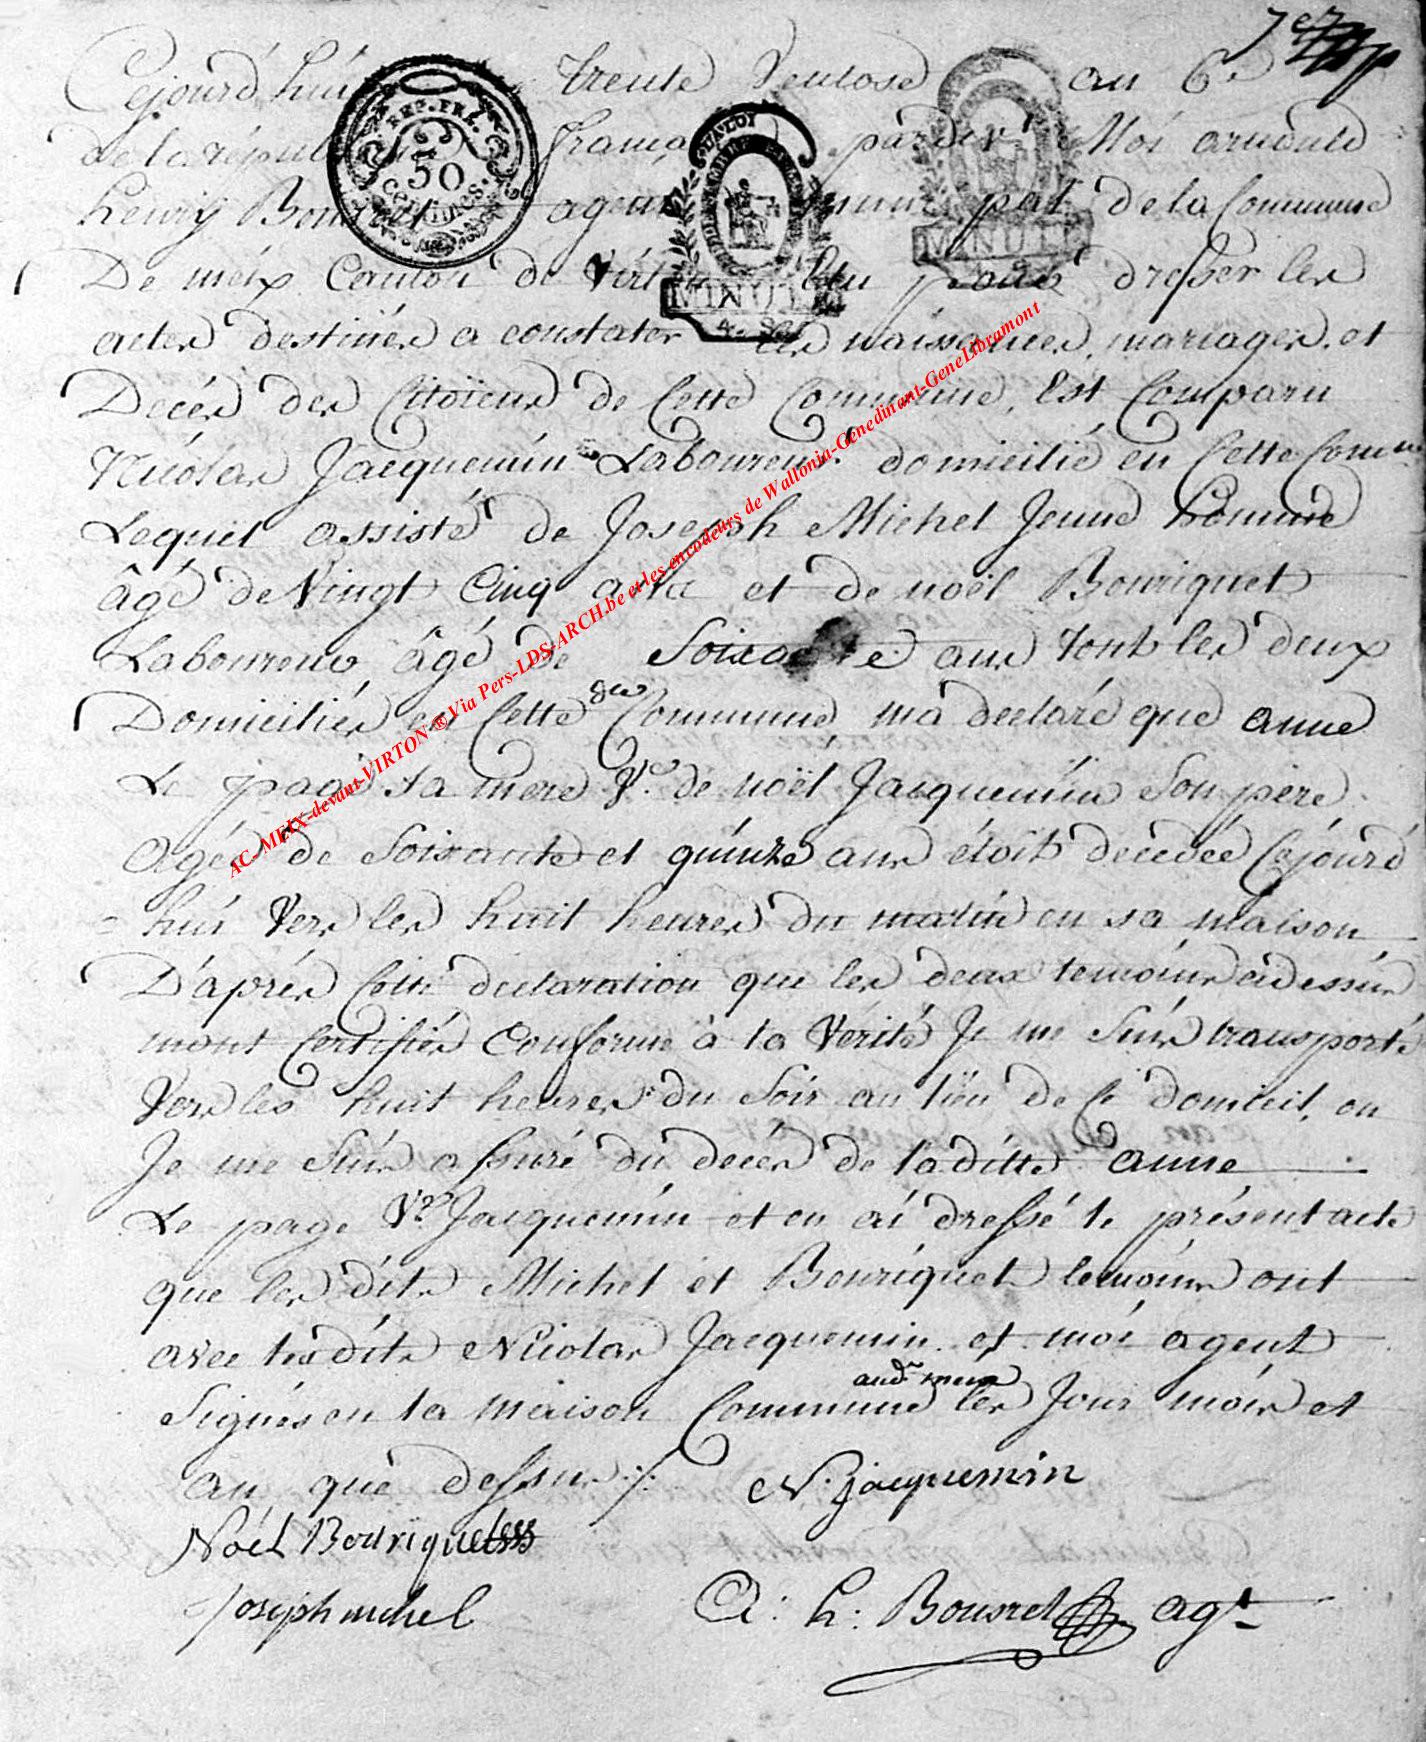 7e
Cejourd'huï trente Ventose an 6e
de la républ franç pardev. Moi arnould
henry Bousret agent muni pal de la Commune
De meix Canton de Virton Elu pour dresser les
actes destinés a constater les naissances, mariages, et
Décés des Citoïens de Cette Commune, Est Comparu
Nicolas Jacquemin Laboureur domicilié en Cette Comm
Lequel assisté de Joseph Michel Jeune homme
âgé de Vingt Cinq ans et de noël Bouriquet
Laboureur âgé de Soixante ans tout les deux
Domiciliés en Cette dte Commune, m'a declaré que anne
Le page sa mere Ve de noël Jacquemin Son père
agée de Soixante et quinze ans étoit décedée Cejourd
= hui Vers les huit heures du matin en sa maison
D'après Cette declaration que les deux temoins cidessus
mont Certifiés Conforme à la Vérité Je me Suis transporté
Vers les huit heures du Soir au lieu de Ce domicil, ou
Je me Suis assuré du decés de laditte anne
Le page Ve Jacquemin et en ai dressé le présent acte
que les dits Michel et Bouriquet temoins ont
avec lesdits Nicolas Jacquemin et moi agent
Signés en la maison Commune audt meix les Jour mois et
an que dessus ./.
N. jacquemin
Noël Bouriquet
joseph michel
A: h: Bousret agt
REP. FRA.
50
CENTIMES.
LA LOI
MINUTE
MINUTE
AC-MEIX-devant-VIRTON ® Via Pers-LDS-ARCH.be et les encodeurs de Wallonia-Genedinant-GeneLibramont